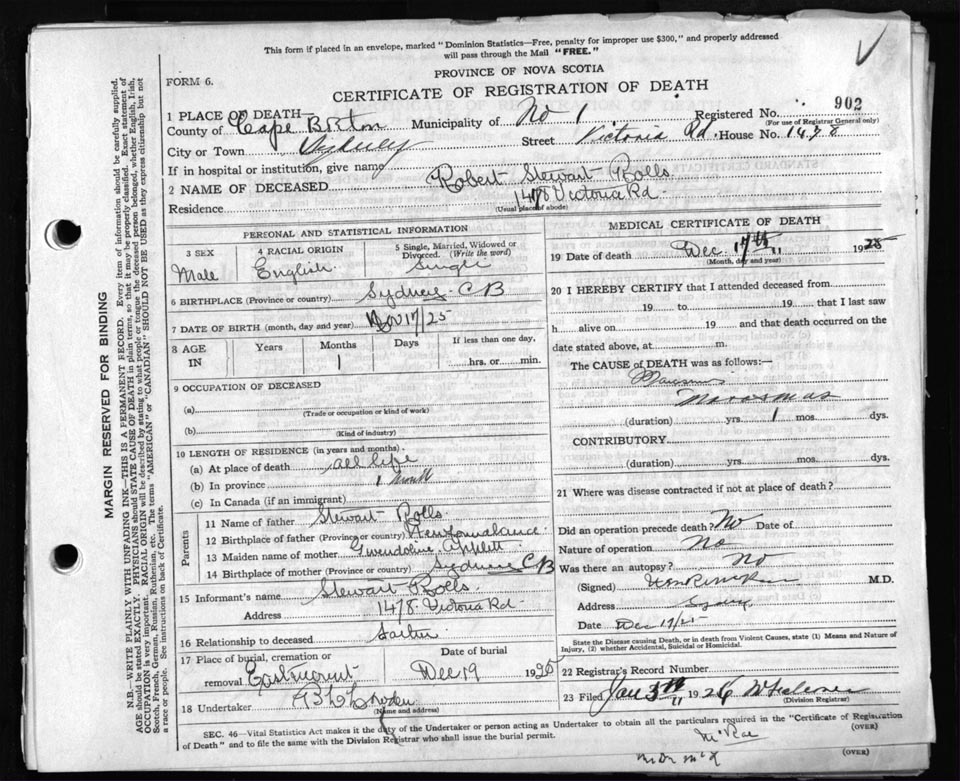 This form if placed in an envelope, marked "Dominion Statistics—Free, penalty for improper use $300," and properly addressed
will pass through the Mail "FREE."
PROVINCE OF NOVA SCOTIA
FORM 6.
CERTIFICATE OF REGISTRATION OF DEATH
Registered No. 902
(For use of Registrar General only)
1 PLACE OF DEATH—
County of Cape Breton Municipality of No 1
City or Town Sydney Street Victoria Rd. House No. 1478
If in hospital or institution, give name
2 NAME OF DECEASED Robert Stewart Rolls
Residence 1478 Victoria Rd
(Usual place of abode)
PERSONAL AND STATISTICAL INFORMATION
3 SEX 4 RACIAL ORIGIN 5 Single, Married, Widowed or
Divorced. (Write the word)
Male English Single
6 BIRTHPLACE (Province or country) Sydney C B
7 DATE OF BIRTH (month, day and year) Nov 17/25
8 AGE IN Years Months Days If less than one day,
1 hrs. or min.
9 OCCUPATION OF DECEASED
(a)
(Trade or occupation or kind of work)
(b)
(Kind of industry)
10 LENGTH OF RESIDENCE (in years and months).
(a) At place of death all life
(b) In province 1 Month
(c) In Canada (if an immigrant)
Parents
11 Name of father Stewart Rolls
12 Birthplace of father (Province or country) Newfoundland
13 Maiden name of mother Gwendoline
14 Birthplace of mother (Province or country) Sydney C B
15 Informant's name Stewart Rolls
Address 1478 Victoria Rd
16 Relationship to deceased Father
17 Place of burial, cremation or Date of burial
removal Eastmount Dec 19 1925
18 Undertaker
(Name and address)
MEDICAL CERTIFICATE OF DEATH
19 Date of death Dec. 17th 1925
(Month, day and year)
20 I HEREBY CERTIFY that I attended deceased from
19 to 19 that I last saw
h alive on 19 and that death occurred on the
date stated above, at m.
The CAUSE of DEATH was as follows:—
Marasmus
(duration) yrs. 1 mos. dys.
CONTRIBUTORY
(duration) yrs. mos. dys.
21 Where was disease contracted if not at place of death?
Did an operation precede death? No Date of
Nature of operation No
Was there an autopsy? No
(Signed) M.D.
Address Sydney
Date Dec 17/25
State the Disease causing Death, or in death from Violent Causes, state (1) Means and Nature of
Injury, (2) whether Accidental, Suicidal or Homicidal.
22 Registrar's Record Number
23 Filed Jan 3rd 1926
(Division Registrar)
SEC. 46—Vital Statistics Act makes it the duty of the Undertaker or person acting as Undertaker to obtain all the particulars required in the "Certificate of Registration
of Death" and to file the same with the Division Registrar who shall issue the burial permit.
(OVER)
McRae
(OVER)
MARGIN RESERVED FOR BINDING
N.B.—WRITE PLAINLY WITH UNFADING INK—THIS IS A PERMANENT RECORD. Every item of information should be carefully supplied.
AGE should be stated EXACTLY. PHYSICIANS should STATE CAUSE OF DEATH in plain terms, so that it may be properly classified. Exact statement of
OCCUPATION is very important. RACIAL ORIGIN will be described by stating to what people or tongue the deceased person belonged, whether English, Irish,
Scotch, French, German, Russian, Ruthenian, etc. The terms "AMERICAN" or "CANADIAN" SHOULD NOT BE USED as they express citizenship but not
a race or people. See instructions on back of Certificate.